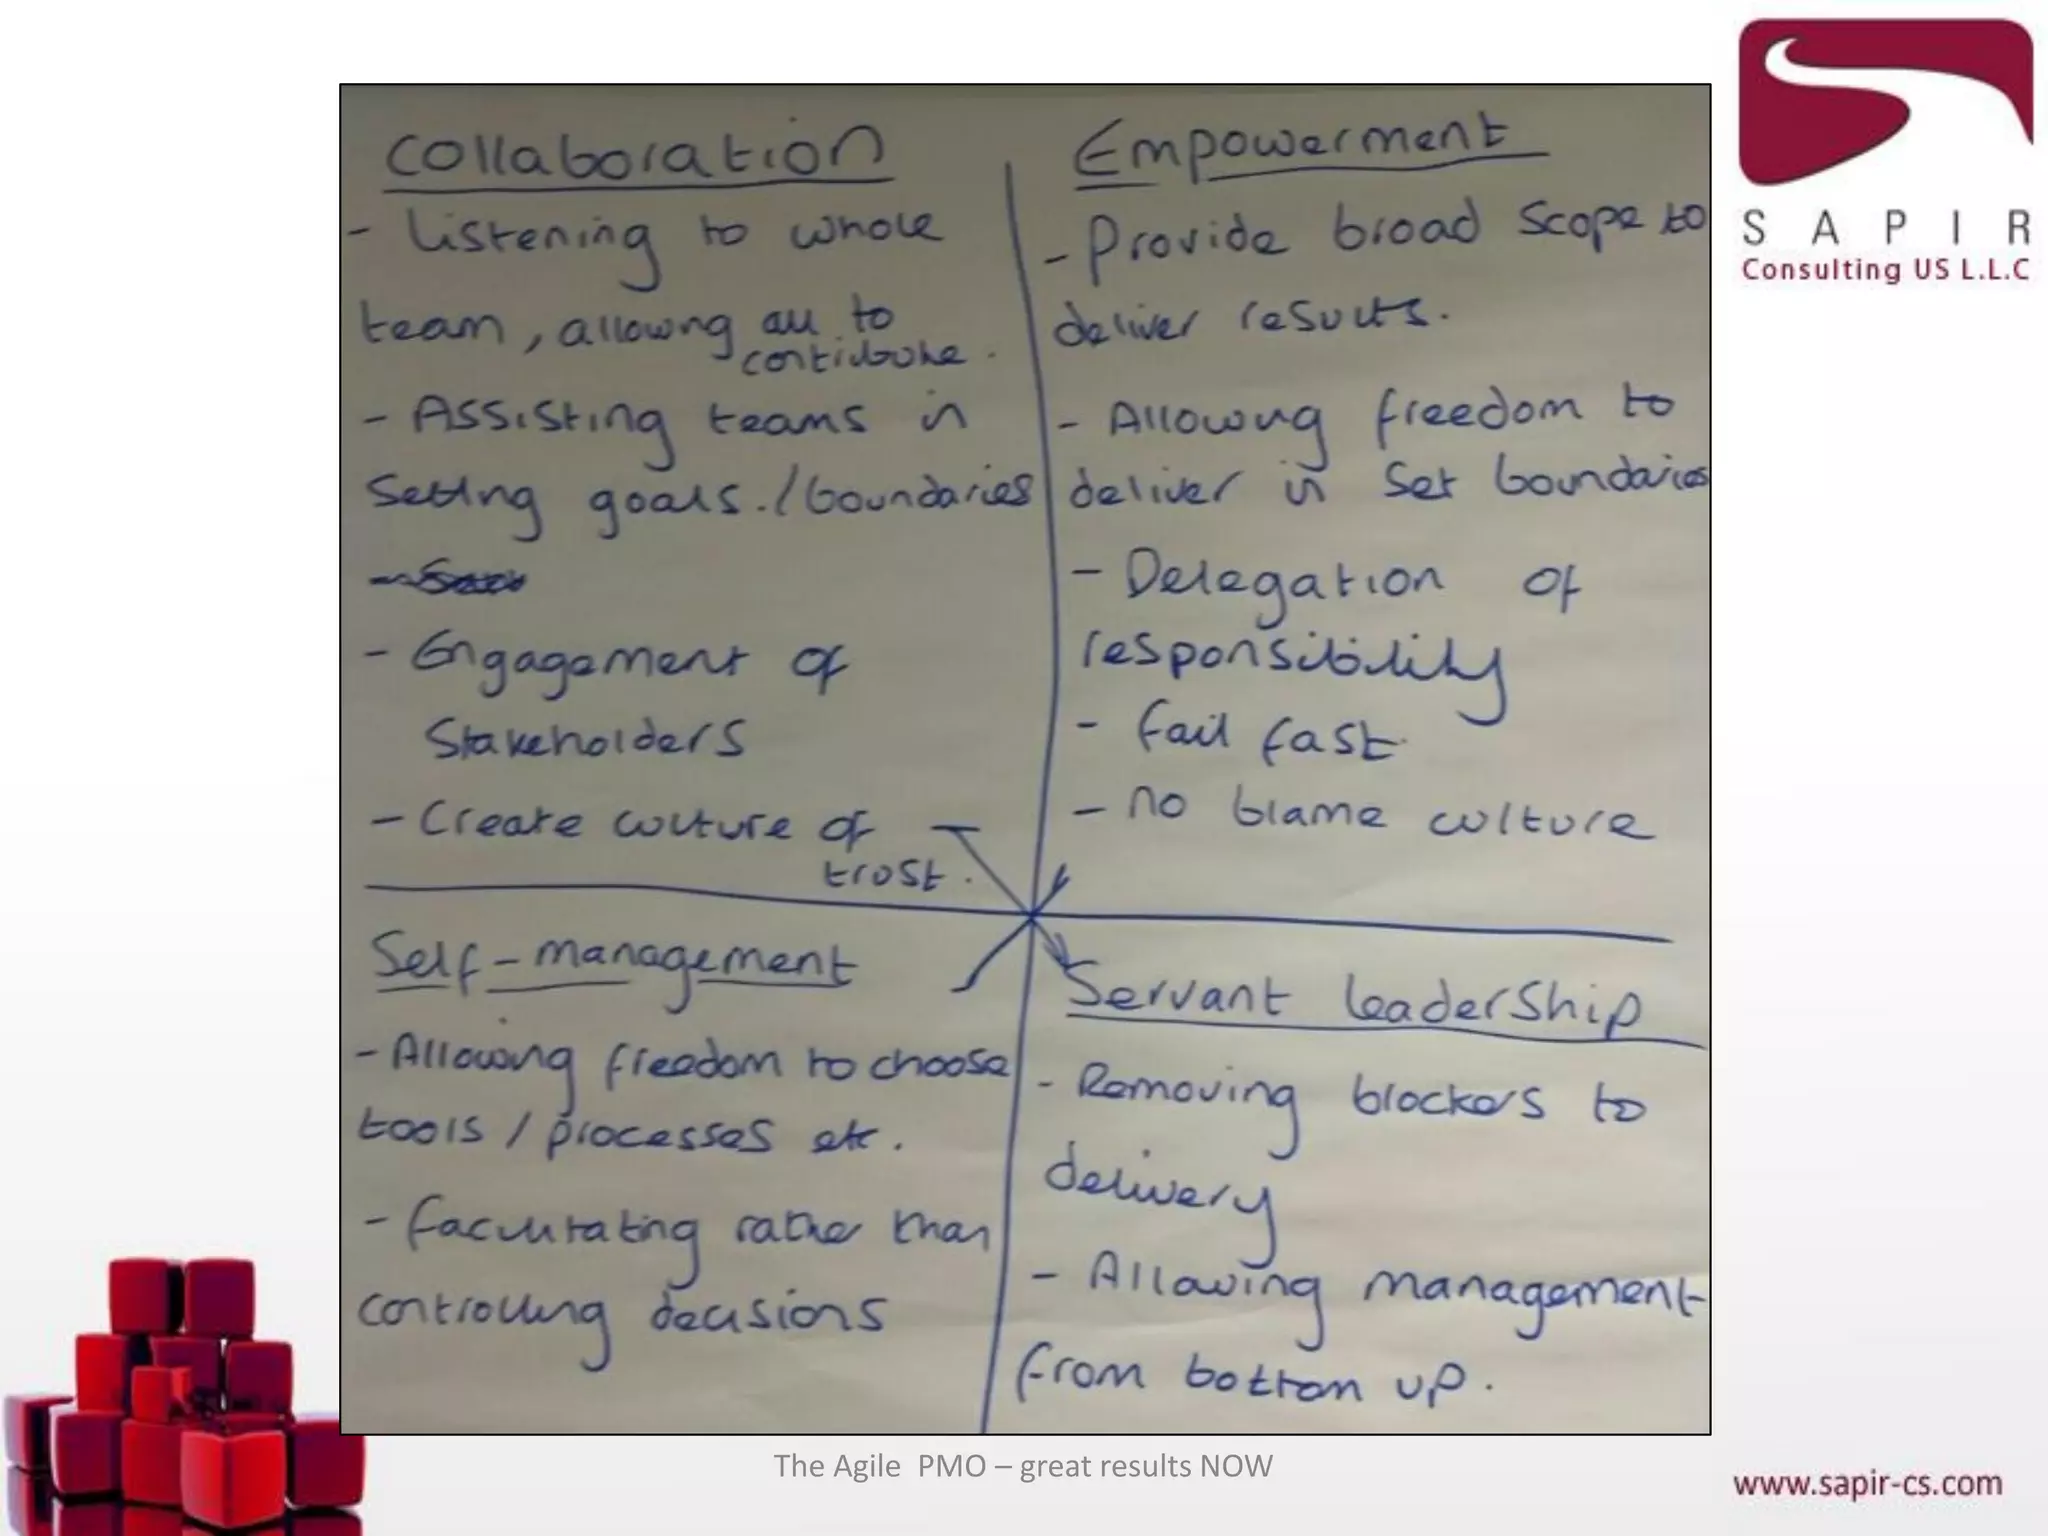 Collaboration
- Listening to whole
team, allowing all to
contribute.
- Assisting teams in
Setting goals./boundaries
- Engagement of
Stakeholders
- Create culture of
trust.
Empowerment
- Provide broad Scope to
deliver results.
- Allowing freedom to
deliver in Set boundaries
- Delegation of
responsibility
- fail fast
- no blame culture
Self-management
- Allowing freedom to choose
tools / processes etc.
- facilitating rather than
controlling decisions
Servant leadership
- Removing blockers to
delivery
- Allowing management
from bottom up.
SAPIR
Consulting US L.L.C
The Agile PMO – great results NOW
www.sapir-cs.com